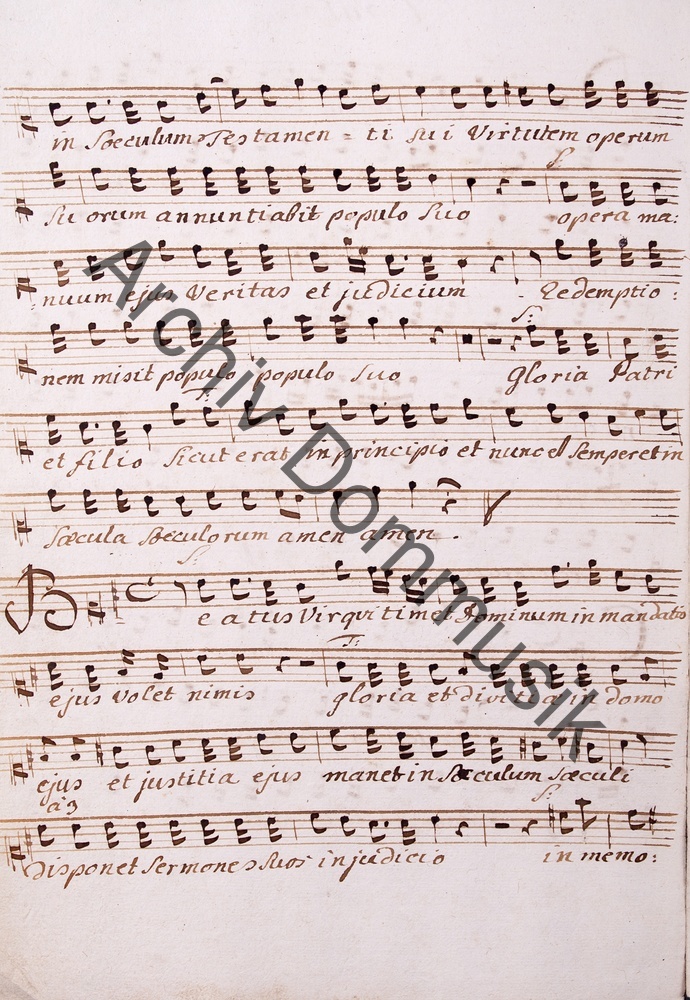 in Soeculum Testamen = ti sui Virtutem operum
S:
Su orum annuntiabit populo Suo opera ma:
nuum ejus Veritas et judicium Redemptio:
S:
nem misit populo populo suo Gloria Patri
T:
et filio Sicut erat in principio et nunc et Semper et in
Sæcula Sæculorum amen amen.
S:
Beatus Vir qui timet Dominum in mandatis
T:
ejus volet nimis gloria et divitiæ in domo
ejus et justitia ejus manet in Sæculum Sæculi
a 3 S:
Disponet Sermones Suos in judicio in memo:
Archiv Dommusik